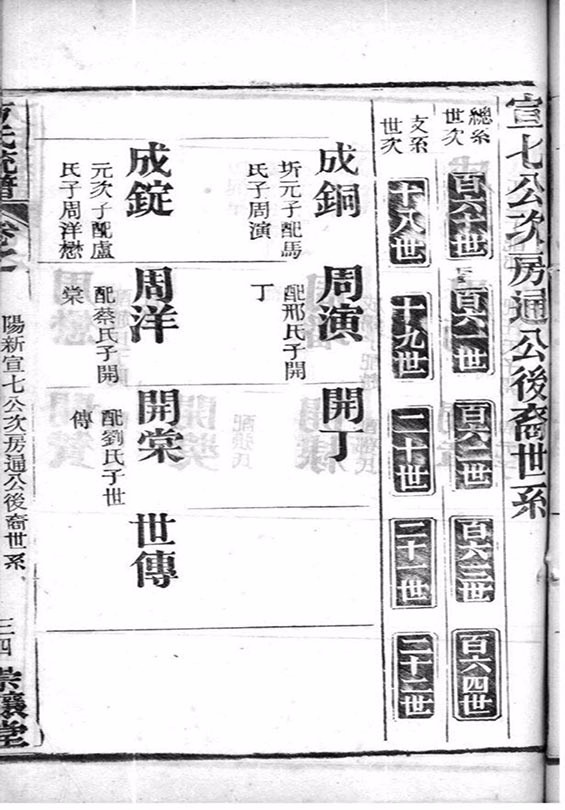 宣七公次房通公後裔世系
總系世次
百六十世
百六一世
百六二世
百六三世
百六四世
支系世次
十八世
十九世
二十世
二十一世
二十二世
成銅
圻元子配馬
氏子周演
周演
配邢氏子開
丁
開丁
成錠
元次子配盧
氏子周洋懋
周洋
配蔡氏子開
棠
開棠
配劉氏子世
傳
世傳
氏統譜
陽新宣七公次房通公後裔世系
三四
堂